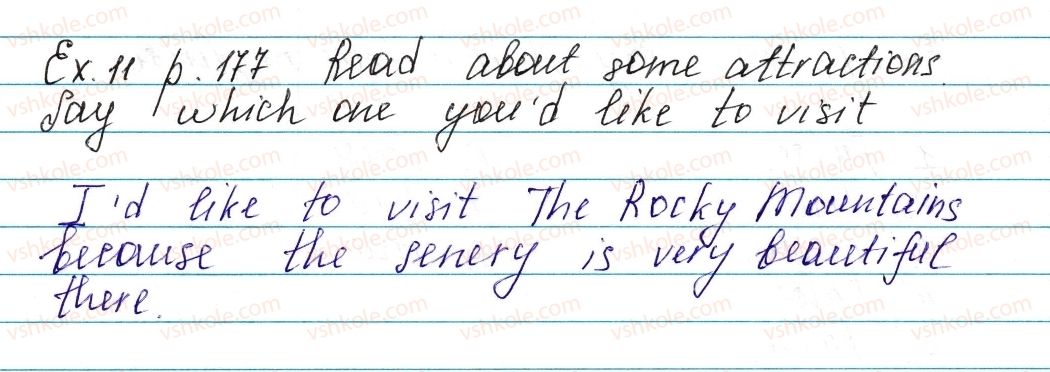 Ex. 11 p. 177 Read about some attractions.
Say which one you'd like to visit
I'd like to visit The Rocky Mountains
because the senery is very beautiful
there.